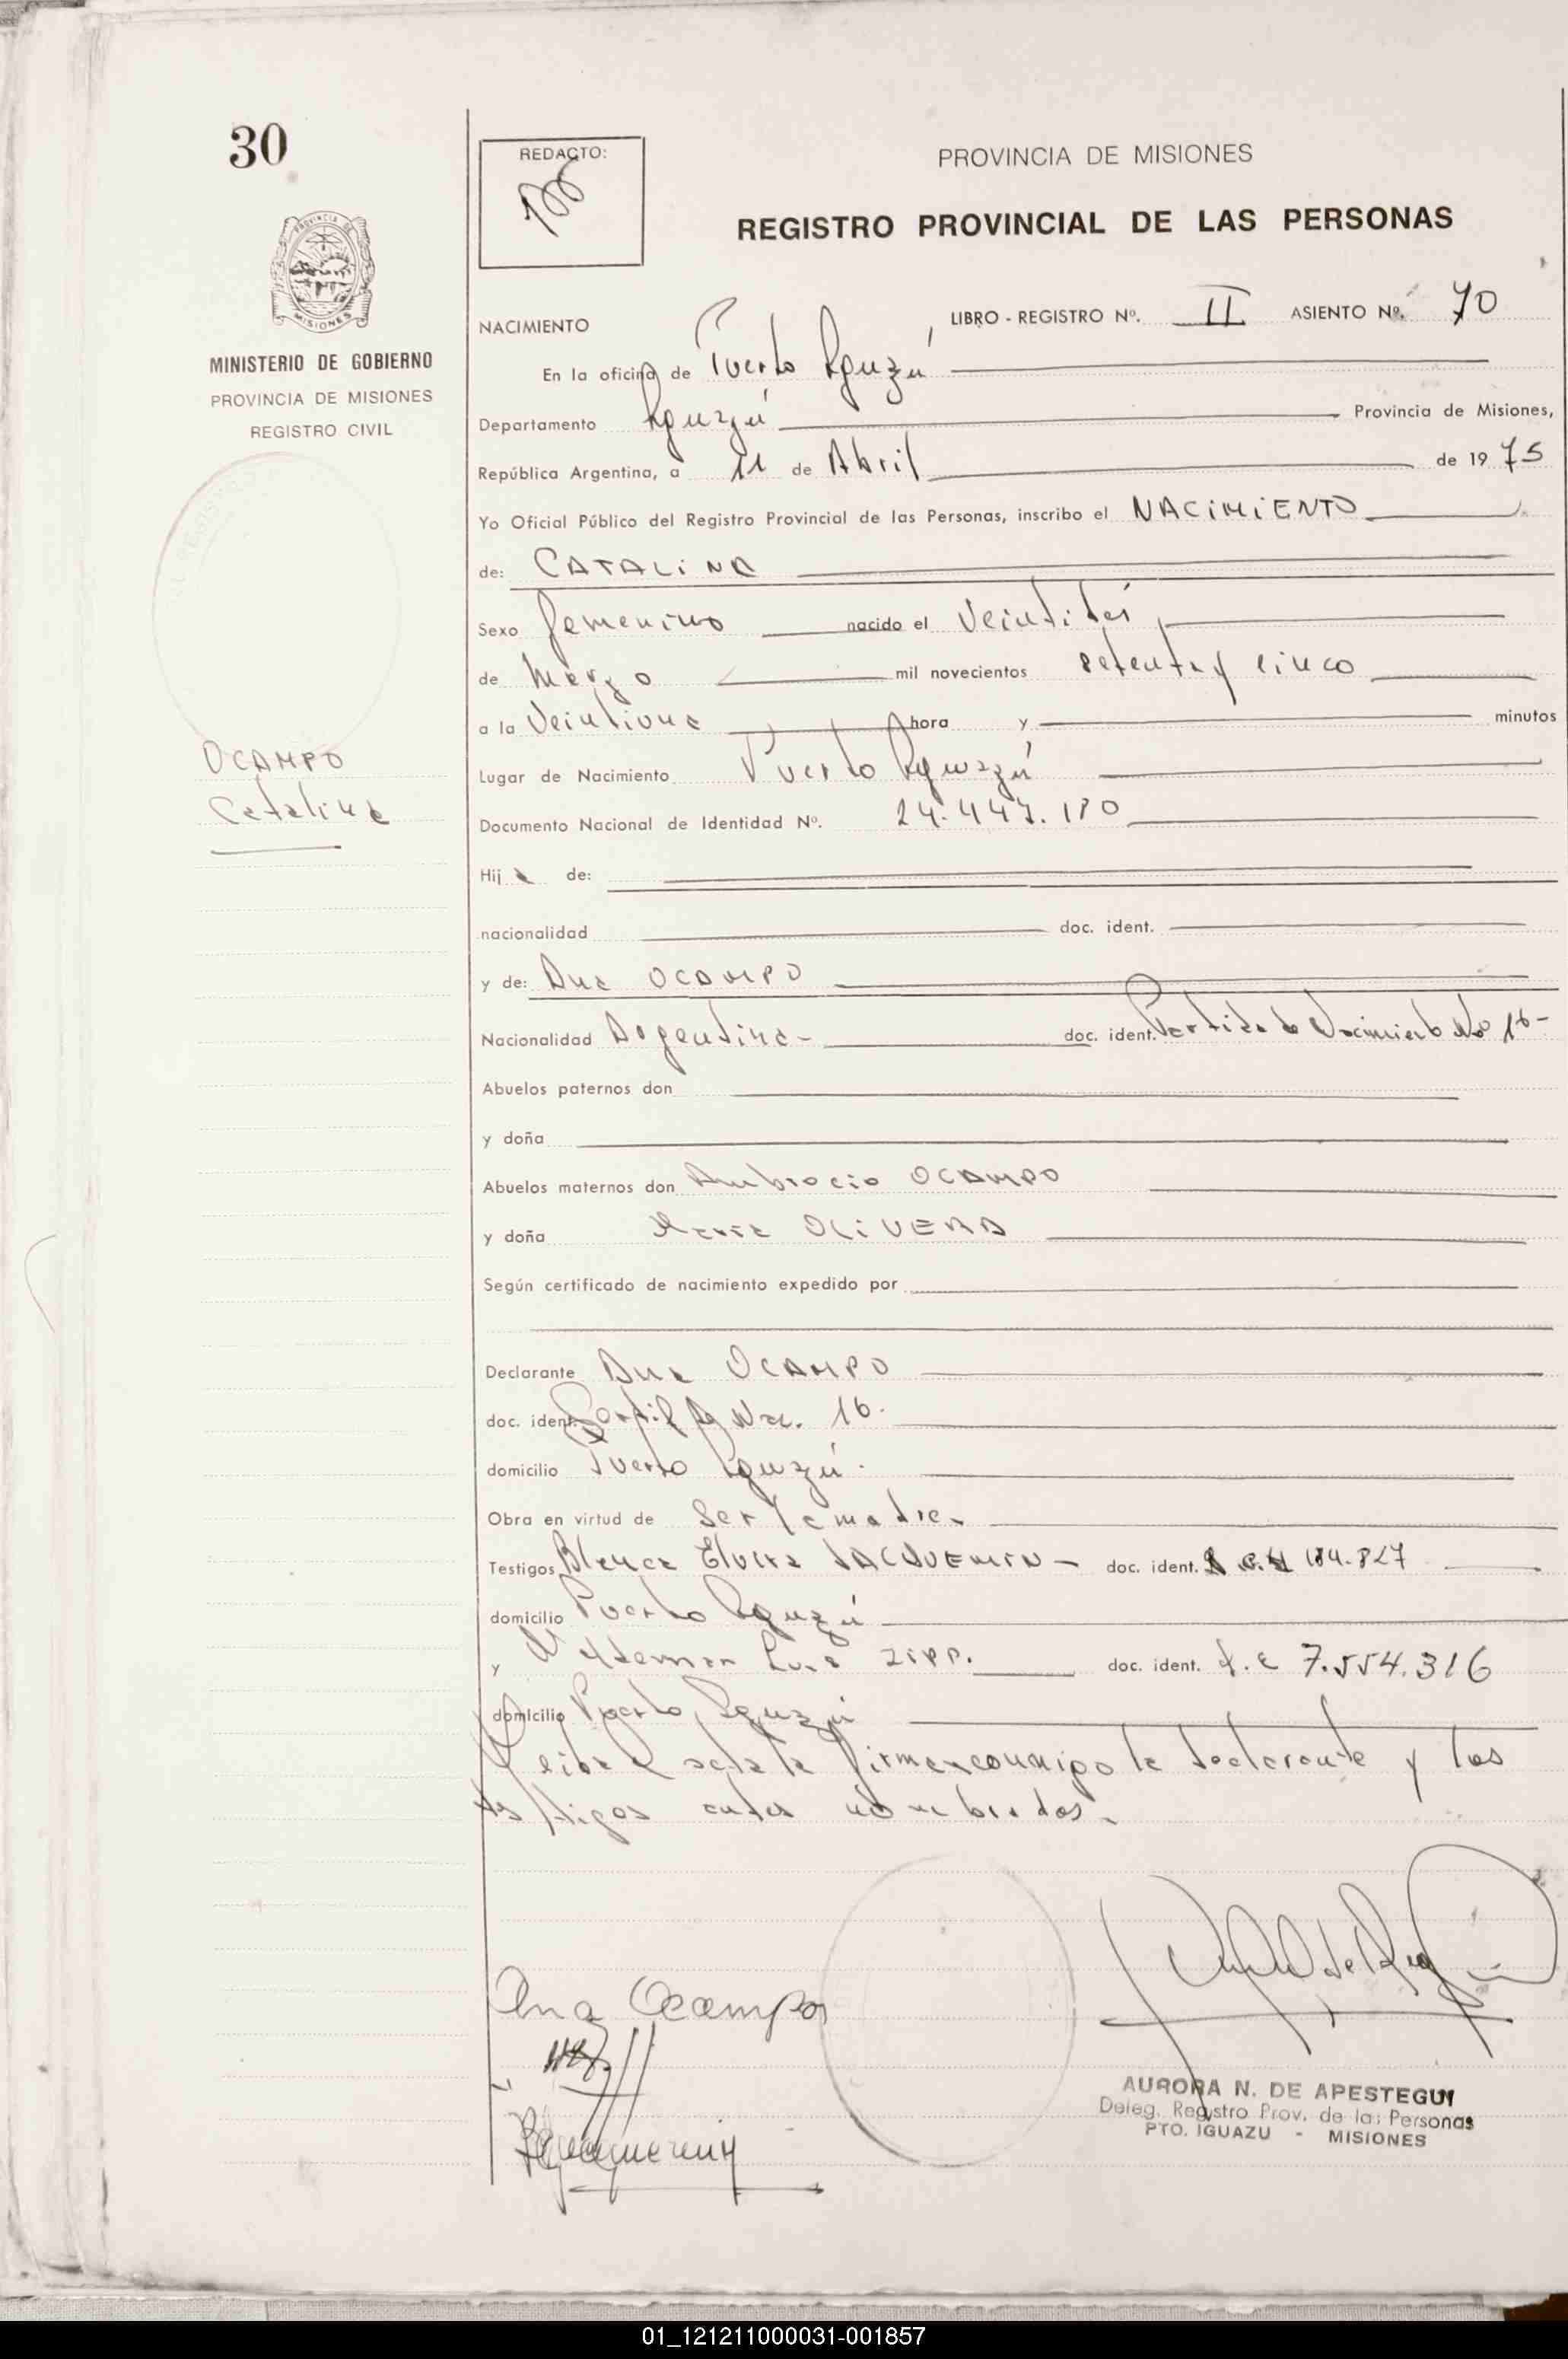 30
REDACTO:
PROVINCIA DE MISIONES
REGISTRO PROVINCIAL DE LAS PERSONAS
PROVINCIA DE
MISIONES
MINISTERIO DE GOBIERNO
PROVINCIA DE MISIONES
REGISTRO CIVIL
NACIMIENTO
LIBRO - REGISTRO Nº. II ASIENTO Nº. 70
En la oficina de Puerto Iguazú
Departamento Iguazú Provincia de Misiones,
República Argentina, a 11 de Abril de 19 75
Yo Oficial Público del Registro Provincial de las Personas, inscribo el NACIMIENTO
de: CATALINA
Sexo femenino nacido el
de Marzo mil novecientos setenta y cinco
a la Veintiuna hora y minutos
OCAMPO
Catalina
Lugar de Nacimiento Puerto Iguazú
Documento Nacional de Identidad Nº. 24.447.180
Hija de:
nacionalidad doc. ident.
y de: Ana OCAMPO
Nacionalidad Argentina- doc. ident. Partida de Nacimiento Nº 16-
Abuelos paternos don
y doña
Abuelos maternos don Ambrocio OCAMPO
y doña Maria OLIVERA
Según certificado de nacimiento expedido por
Declarante Ana OCAMPO
doc. ident. Nac. 16.
domicilio Puerto Iguazú.
Obra en virtud de Ser la madre-
Testigos Blanca Elvira JACQUEMIN- doc. ident. 184.827
domicilio Puerto Iguazú
y Luis ZIPP. doc. ident. L.E 7.554.316
domicilio Puerto Iguazú
Leida el acta la firman conmigo la declarante y los
testigos antes nombrados.
Ana Ocampo
AURORA N. DE APESTEGUI
Deleg. Registro Prov. de las Personas
PTO. IGUAZU - MISIONES
01_121211000031-001857